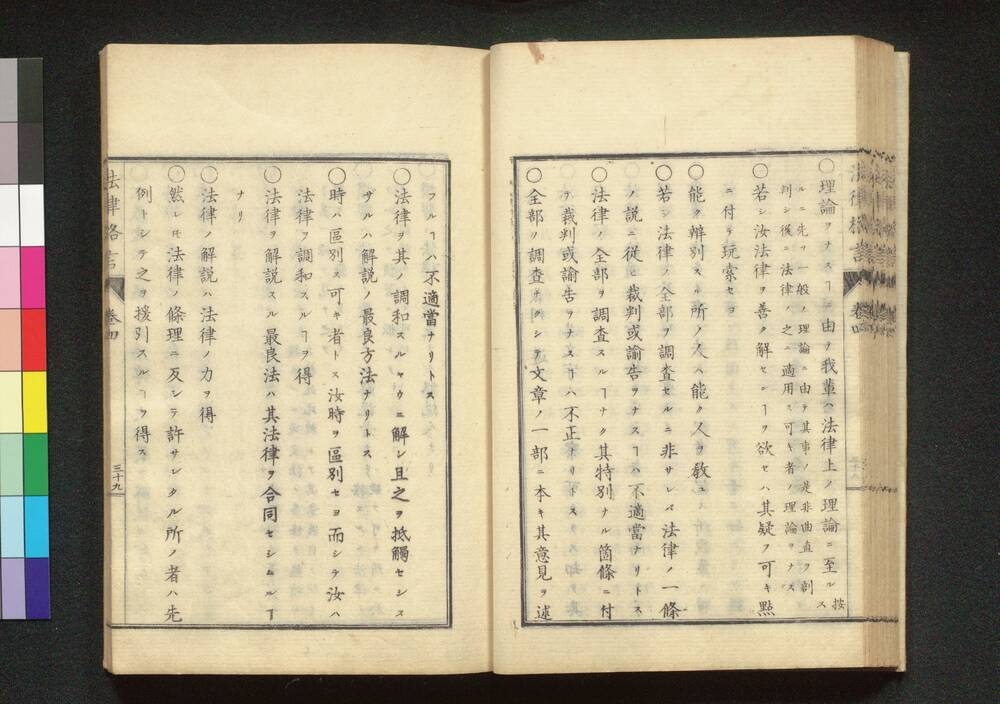 ○理論ヲナスヿニ由ヲ我輩ハ法律上ノ理論ニ至ル
按ス
ルニ先ツ一般ノ理論ニ由テ其事ノ是非曲直ヲ剖
判シ後ニ法律ノ之ニ適用ス可キ者ノ理論ヲナス
○若シ汝法律ヲ善ク解センヿヲ欲セハ其疑フ可キ㸃
ニ付テ玩索セヨ
○能ク辨別スル所ノ人ハ能ク人ヲ敎ユ
○若シ法律ノ全部ヲ調査セルニ非サレバ法律ノ一條
ノ説ニ從ヒ裁判或諭告ヲナスヿハ不適當ナリトス
○法律ノ全部ヲ調査スルヿナク其特別ナル箇條ニ付
テ裁判或諭告ヲナスヿハ不正ナリトス
○全部ヲ調査セスシテ文章ノ一部ニ本キ其意見ヲ述
フルヿハ不適當ナリトス
○法律ヲ其ノ調和スルヤウニ解シ且之ヲ抵觸セシス
ザルハ解説ノ最良方法ナリトス
○時ハ區別ス可キ者トス汝時ヲ區別セヨ而シテ汝ハ
法律ヲ調和スルヿヲ得
○法律ヲ解説スル最良法ハ其法律ヲ合同セシムルヿ
ナリ
○法律ノ解説ハ法律ノ力ヲ得
○然レ𪜈法律ノ條理ニ反シテ許サレタル所ノ者ハ先
例トシテ之ヲ援引スルヿヲ得ス
法律格言
卷四
三十九